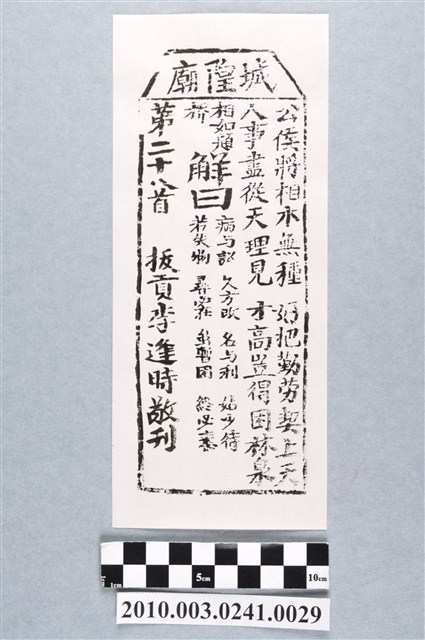 城隍廟
公侯將相本無種 好把勤勞契上天
人事盡從天理見 才高豈得困林泉
相如題
橋
解曰
病与訟 久方改 名与利 姑少待
若失物 尋 暫困 終必
第二十八首 拔貢李逢時敬刊
1cm 5cm 10cm
2010.003.0241.0029